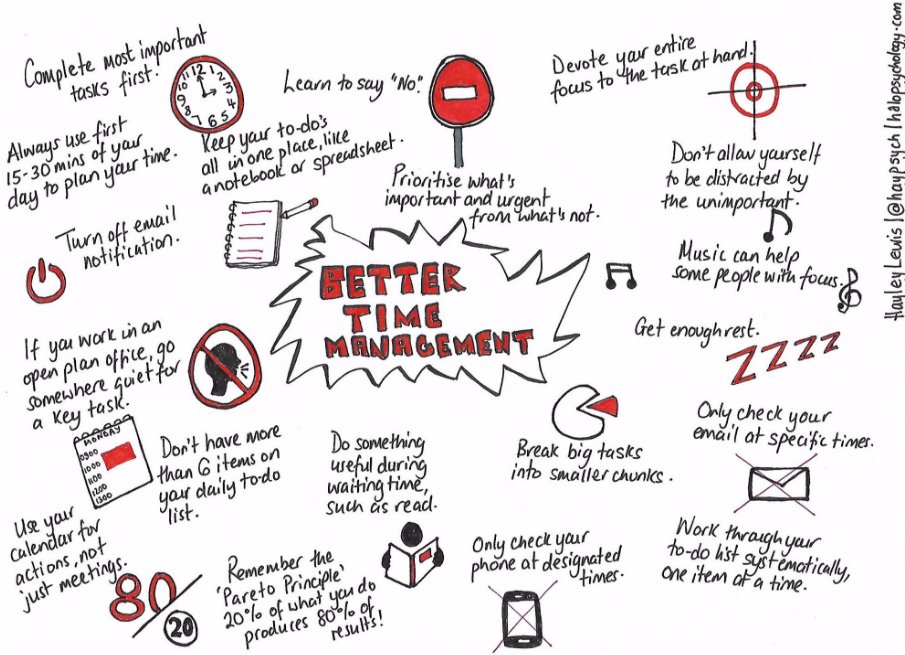 Complete most important
tasks first.
12 1 2 3 4 5 6 7 8 9 10 11
Always use first
15-30 mins of your
day to plan your time.
Learn to say "No".
Keep your to-do's
all in one place, like
a notebook or spreadsheet.
Prioritise what's
important and urgent
from what's not.
Devote your entire
focus to the task at hand.
Don't allow yourself
to be distracted by
the unimportant.
Hayley Lewis | @haypsych | halopsychology.com
Turn off email
notification.
BETTER
TIME
MANAGEMENT
Music can help
some people with focus.
Get enough rest.
ZZZZ
If you work in an
open plan office, go
somewhere quiet for
a key task.
MONDAY
0900
1000
1100
1200
1300
Don't have more
than 6 items on
your daily to-do
list.
Do something
useful during
waiting time,
such as read.
Break big tasks
into smaller chunks.
Only check your
email at specific times.
Use your
calendar for
actions, not
just meetings.
80
20
Remember the
'Pareto Principle'
20% of what you do
produces 80% of
results!
Only check your
phone at designated
times.
Work through your
to-do list systematically,
one item at a time.